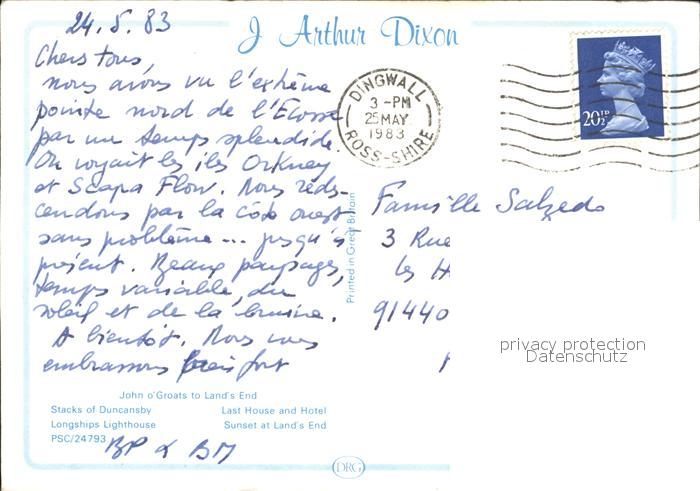 24.5.83
J Arthur Dixon
Chers tous,
nous avons vu l'extrême
pointe nord de l'Ecosse
par un temps splendide.
On voyait les îles Orkney
et Scapa Flow. Nous redes-
cendons par la côte ouest
sans problème... jusqu'à
présent. Beaux paysages,
temps variable, du
soleil et de la bruine.
A bientôt. Nous vous
embrassons fort
BP & BM
John o'Groats to Land's End
Stacks of Duncansby
Last House and Hotel
Longships Lighthouse
Sunset at Land's End
PSC/24793
Printed in Great Britain
DRG
DINGWALL
3-PM
25 MAY
1983
ROSS-SHIRE
20½P
Famille Salzedo
3 Rue
les H
91440
privacy protection
Datenschutz